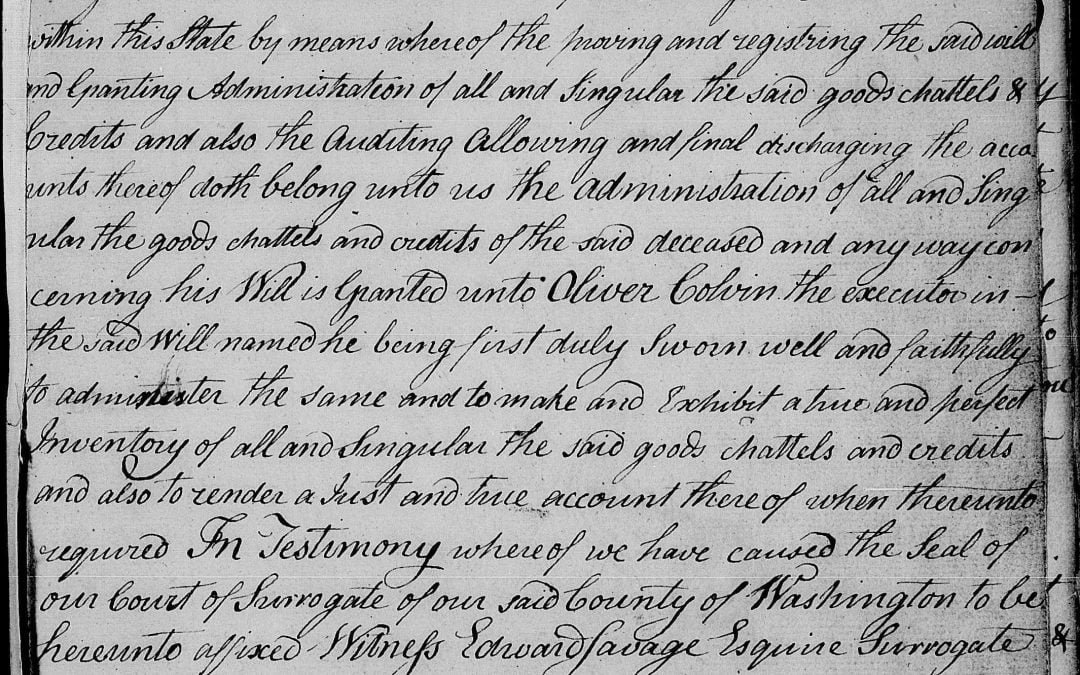 within this State by means whereof the proving and registring the said will
and Granting Administration of all and Singular the said goods chattels &
Credits and also the Auditing Allowing and final discharging the acco
unts thereof doth belong unto us the administration of all and Sing
ular the goods chattels and credits of the said deceased and any way con
cerning his Will is Granted unto Oliver Colvin the executor in
the said Will named he being first duly Sworn well and faithfully
to administer the same and to make and Exhibit a true and perfect
Inventory of all and Singular the said goods chattels and credits
and also to render a Just and true account thereof when thereunto
required In Testimony whereof we have caused the Seal of
our Court of Surrogate of our said County of Washington to be
hereunto affixed Witness Edward Savage Esquire Surrogate